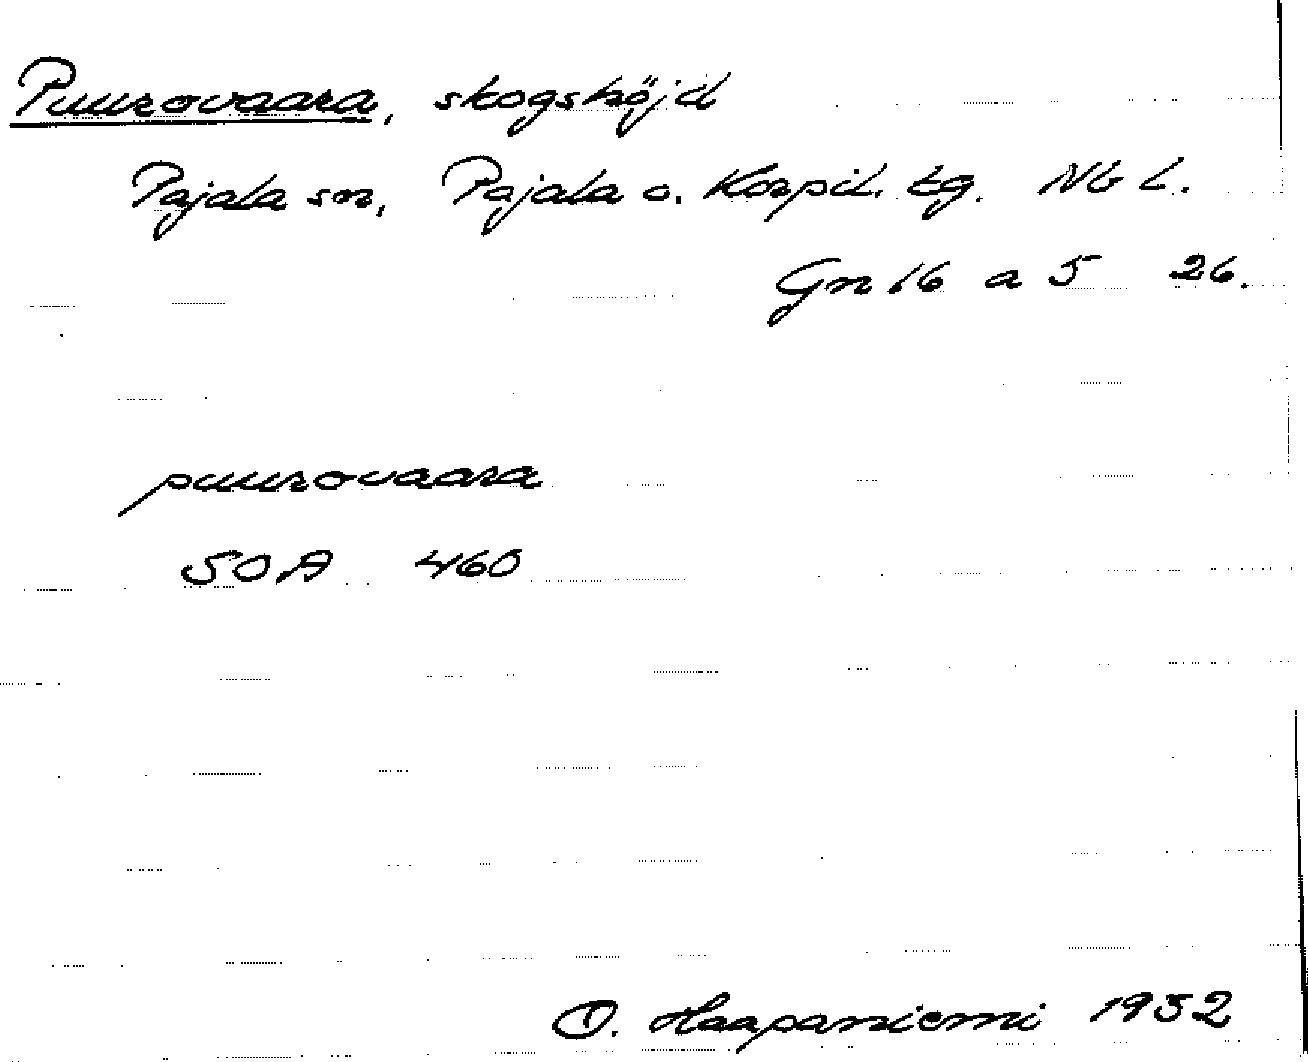 Puurovaara, skogshöjd
Pajala sn, Pajala o. Korpil. tg. Nb L.
Gn 16 a 5 26.
puurovaara
SOA 460
O. Haapaniemi 1932